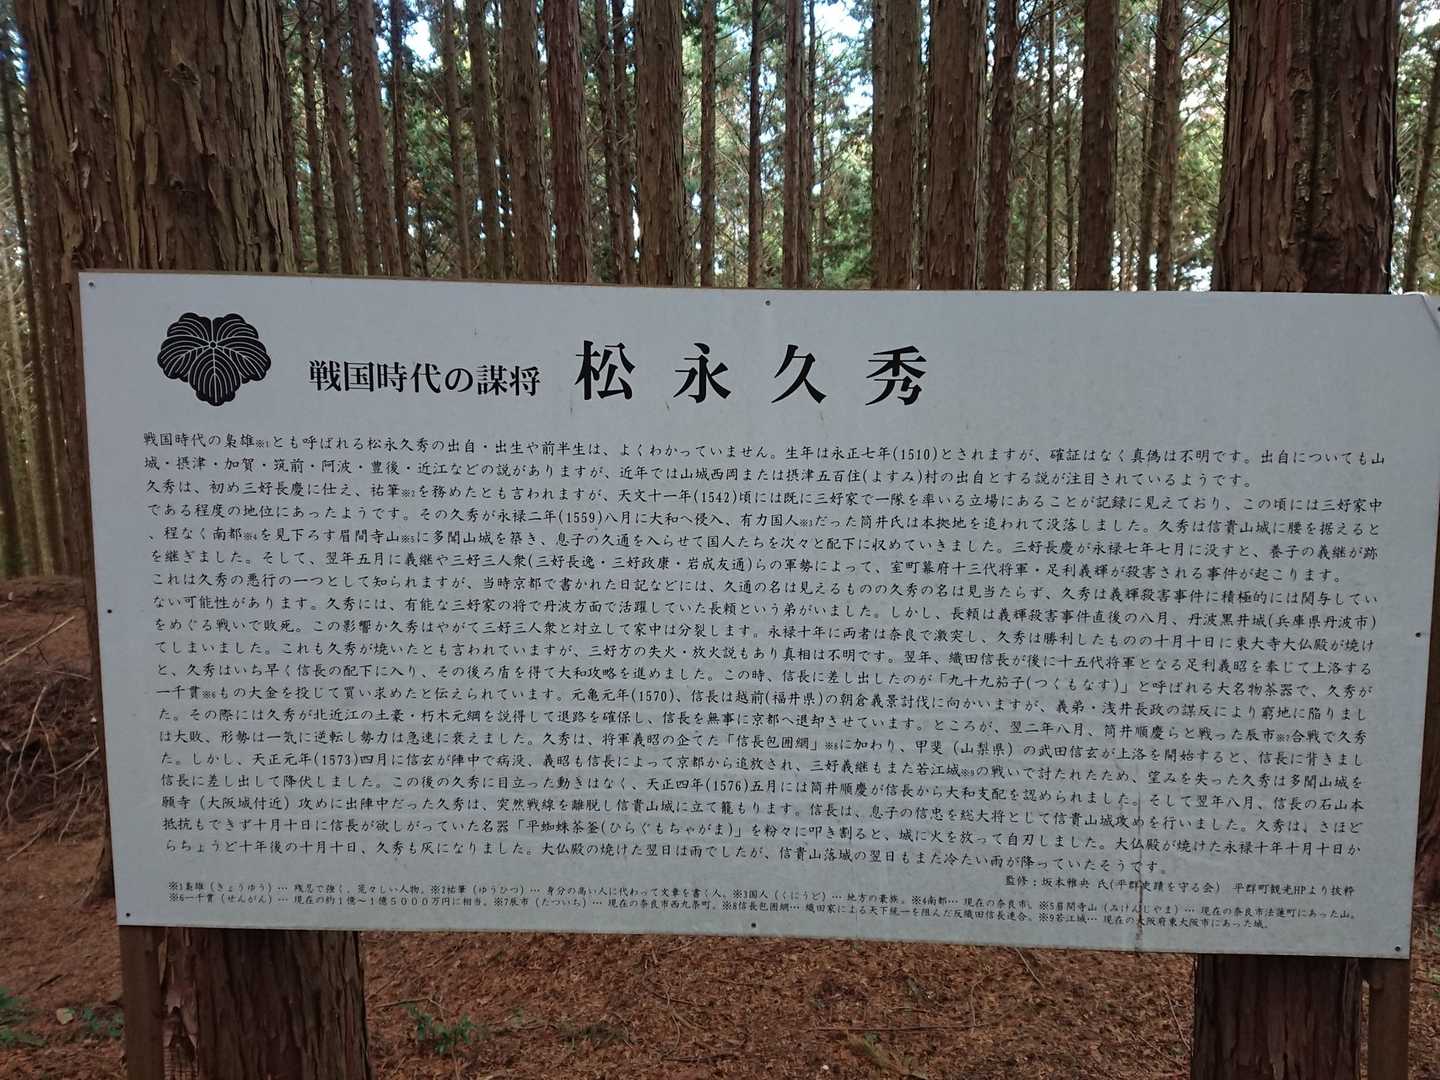 戦国時代の謀将 松永久秀
戦国時代の梟雄※1とも呼ばれる松永久秀の出自・出生や前半生は、よくわかっていません。生年は永正七年(1510)とされますが、確証はなく真偽は不明です。出自についても山
城・摂津・加賀・筑前・阿波・豊後・近江などの説がありますが、近年では山城西岡または摂津五百住(よすみ)村の出自とする説が注目されているようです。
久秀は、初め三好長慶に仕え、祐筆※2を務めたとも言われますが、天文十一年(1542)頃には既に三好家で一隊を率いる立場にあることが記録に見えており、この頃には三好家中
である程度の地位にあったようです。その久秀が永禄二年(1559)八月に大和へ侵入、有力国人※3だった筒井氏は本拠地を追われて没落しました。久秀は信貴山城に腰を据えると
、程なく南都※4を見下ろす眉間寺山※5に多聞山城を築き、息子の久通を入らせて国人たちを次々と配下に収めていきました。三好長慶が永禄七年七月に没すと、養子の義継が跡
を継ぎました。そして、翌年五月に義継や三好三人衆(三好長逸・三好政康・岩成友通)らの軍勢によって、室町幕府十三代将軍・足利義輝が殺害される事件が起こります。
これは久秀の悪行の一つとして知られますが、当時京都で書かれた日記などには、久通の名は見えるものの久秀の名は見当たらず、久秀は義輝殺害事件に積極的には関与してい
ない可能性があります。久秀には、有能な三好家の将で丹波方面で活躍していた長頼という弟がいました。しかし、長頼は義輝殺害事件直後の八月、丹波黒井城(兵庫県丹波市)
をめぐる戦いで敗死。この影響か久秀はやがて三好三人衆と対立して家中は分裂します。永禄十年に両者は奈良で激突し、久秀は勝利したものの十月十日に東大寺大仏殿が焼け
てしまいました。これも久秀が焼いたとも言われていますが、三好方の失火・放火説もあり真相は不明です。翌年、織田信長が後に十五代将軍となる足利義昭を奉じて上洛する
と、久秀はいち早く信長の配下に入り、その後ろ盾を得て大和攻略を進めました。この時、信長に差し出したのが「九十九茄子(つくもなす)」と呼ばれる大名物茶器で、久秀が
一千貫※6もの大金を投じて買い求めたと伝えられています。元亀元年(1570)、信長は越前(福井県)の朝倉義景討伐に向かいますが、義弟・浅井長政の謀反により窮地に陥りまし
た。その際には久秀が北近江の土豪・朽木元綱を説得して退路を確保し、信長を無事に京都へ退却させています。ところが、翌二年八月、筒井順慶らと戦った辰市※7合戦で久秀
は大敗、形勢は一気に逆転し勢力は急速に衰えました。久秀は、将軍義昭の企てた「信長包囲網」※8に加わり、甲斐（山梨県）の武田信玄が上洛を開始すると、信長に背きまし
た。しかし、天正元年(1573)四月に信玄が陣中で病没、義昭も信長によって京都から追放され、三好義継もまた若江城※9の戦いで討たれたため、望みを失った久秀は多聞山城を
信長に差し出して降伏しました。この後の久秀に目立った動きはなく、天正四年(1576)五月には筒井順慶が信長から大和支配を認められました。そして翌年八月、信長の石山本
願寺（大阪城付近）攻めに出陣中だった久秀は、突然戦線を離脱し信貴山城に立て籠もります。信長は、息子の信忠を総大将として信貴山城攻めを行いました。久秀は、さほど
抵抗もできず十月十日に信長が欲しがっていた名器「平蜘蛛茶釜(ひらぐもちゃがま)」を粉々に叩き割ると、城に火を放って自刃しました。大仏殿が焼けた永禄十年十月十日か
らちょうど十年後の十月十日、久秀も灰になりました。大仏殿の焼けた翌日は雨でしたが、信貴山落城の翌日もまた冷たい雨が降っていたそうです。
監修：坂本雅央 氏(平群史蹟を守る会) 平群町観光HPより抜粋
※1梟雄（きょうゆう）… 残忍で強く、荒々しい人物。※2祐筆（ゆうひつ）… 身分の高い人に代わって文章を書く人。※3国人（くにうど）… 地方の豪族。※4南都… 現在の奈良市。※5眉間寺山（みけんじやま）… 現在の奈良市法蓮町にあった山。
※6一千貫（せんがん）… 現在の約１億～１億５０００万円に相当。※7辰市（たついち）… 現在の奈良市西九条町。※8信長包囲網… 織田家による天下統一を阻んだ反織田信長連合。※9若江城… 現在の大阪府東大阪市にあった城。